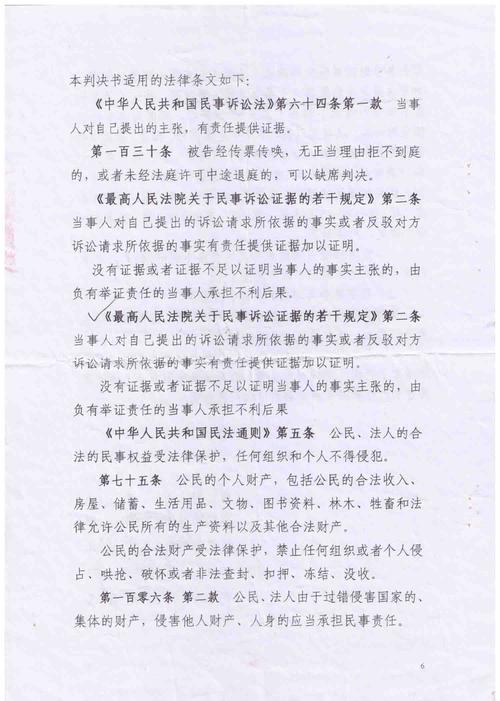 本判决书适用的法律条文如下：
《中华人民共和国民事诉讼法》第六十四条第一款 当事
人对自己提出的主张，有责任提供证据。
第一百三十条 被告经传票传唤，无正当理由拒不到庭
的，或者未经法庭许可中途退庭的，可以缺席判决。
《最高人民法院关于民事诉讼证据的若干规定》第二条
当事人对自己提出的诉讼请求所依据的事实或者反驳对方
诉讼请求所依据的事实有责任提供证据加以证明。
没有证据或者证据不足以证明当事人的事实主张的，由
负有举证责任的当事人承担不利后果。
《最高人民法院关于民事诉讼证据的若干规定》第二条
当事人对自己提出的诉讼请求所依据的事实或者反驳对方
诉讼请求所依据的事实有责任提供证据加以证明。
没有证据或者证据不足以证明当事人的事实主张的，由
负有举证责任的当事人承担不利后果
《中华人民共和国民法通则》第五条 公民、法人的合
法的民事权益受法律保护，任何组织和个人不得侵犯。
第七十五条 公民的个人财产，包括公民的合法收入、
房屋、储蓄、生活用品、文物、图书资料、林木、牲畜和法
律允许公民所有的生产资料以及其他合法财产。
公民的合法财产受法律保护，禁止任何组织或者个人侵
占、哄抢、破怀或者非法查封、扣押、冻结、没收。
第一百零六条 第二款 公民、法人由于过错侵害国家的、
集体的财产，侵害他人财产、人身的应当承担民事责任。
6